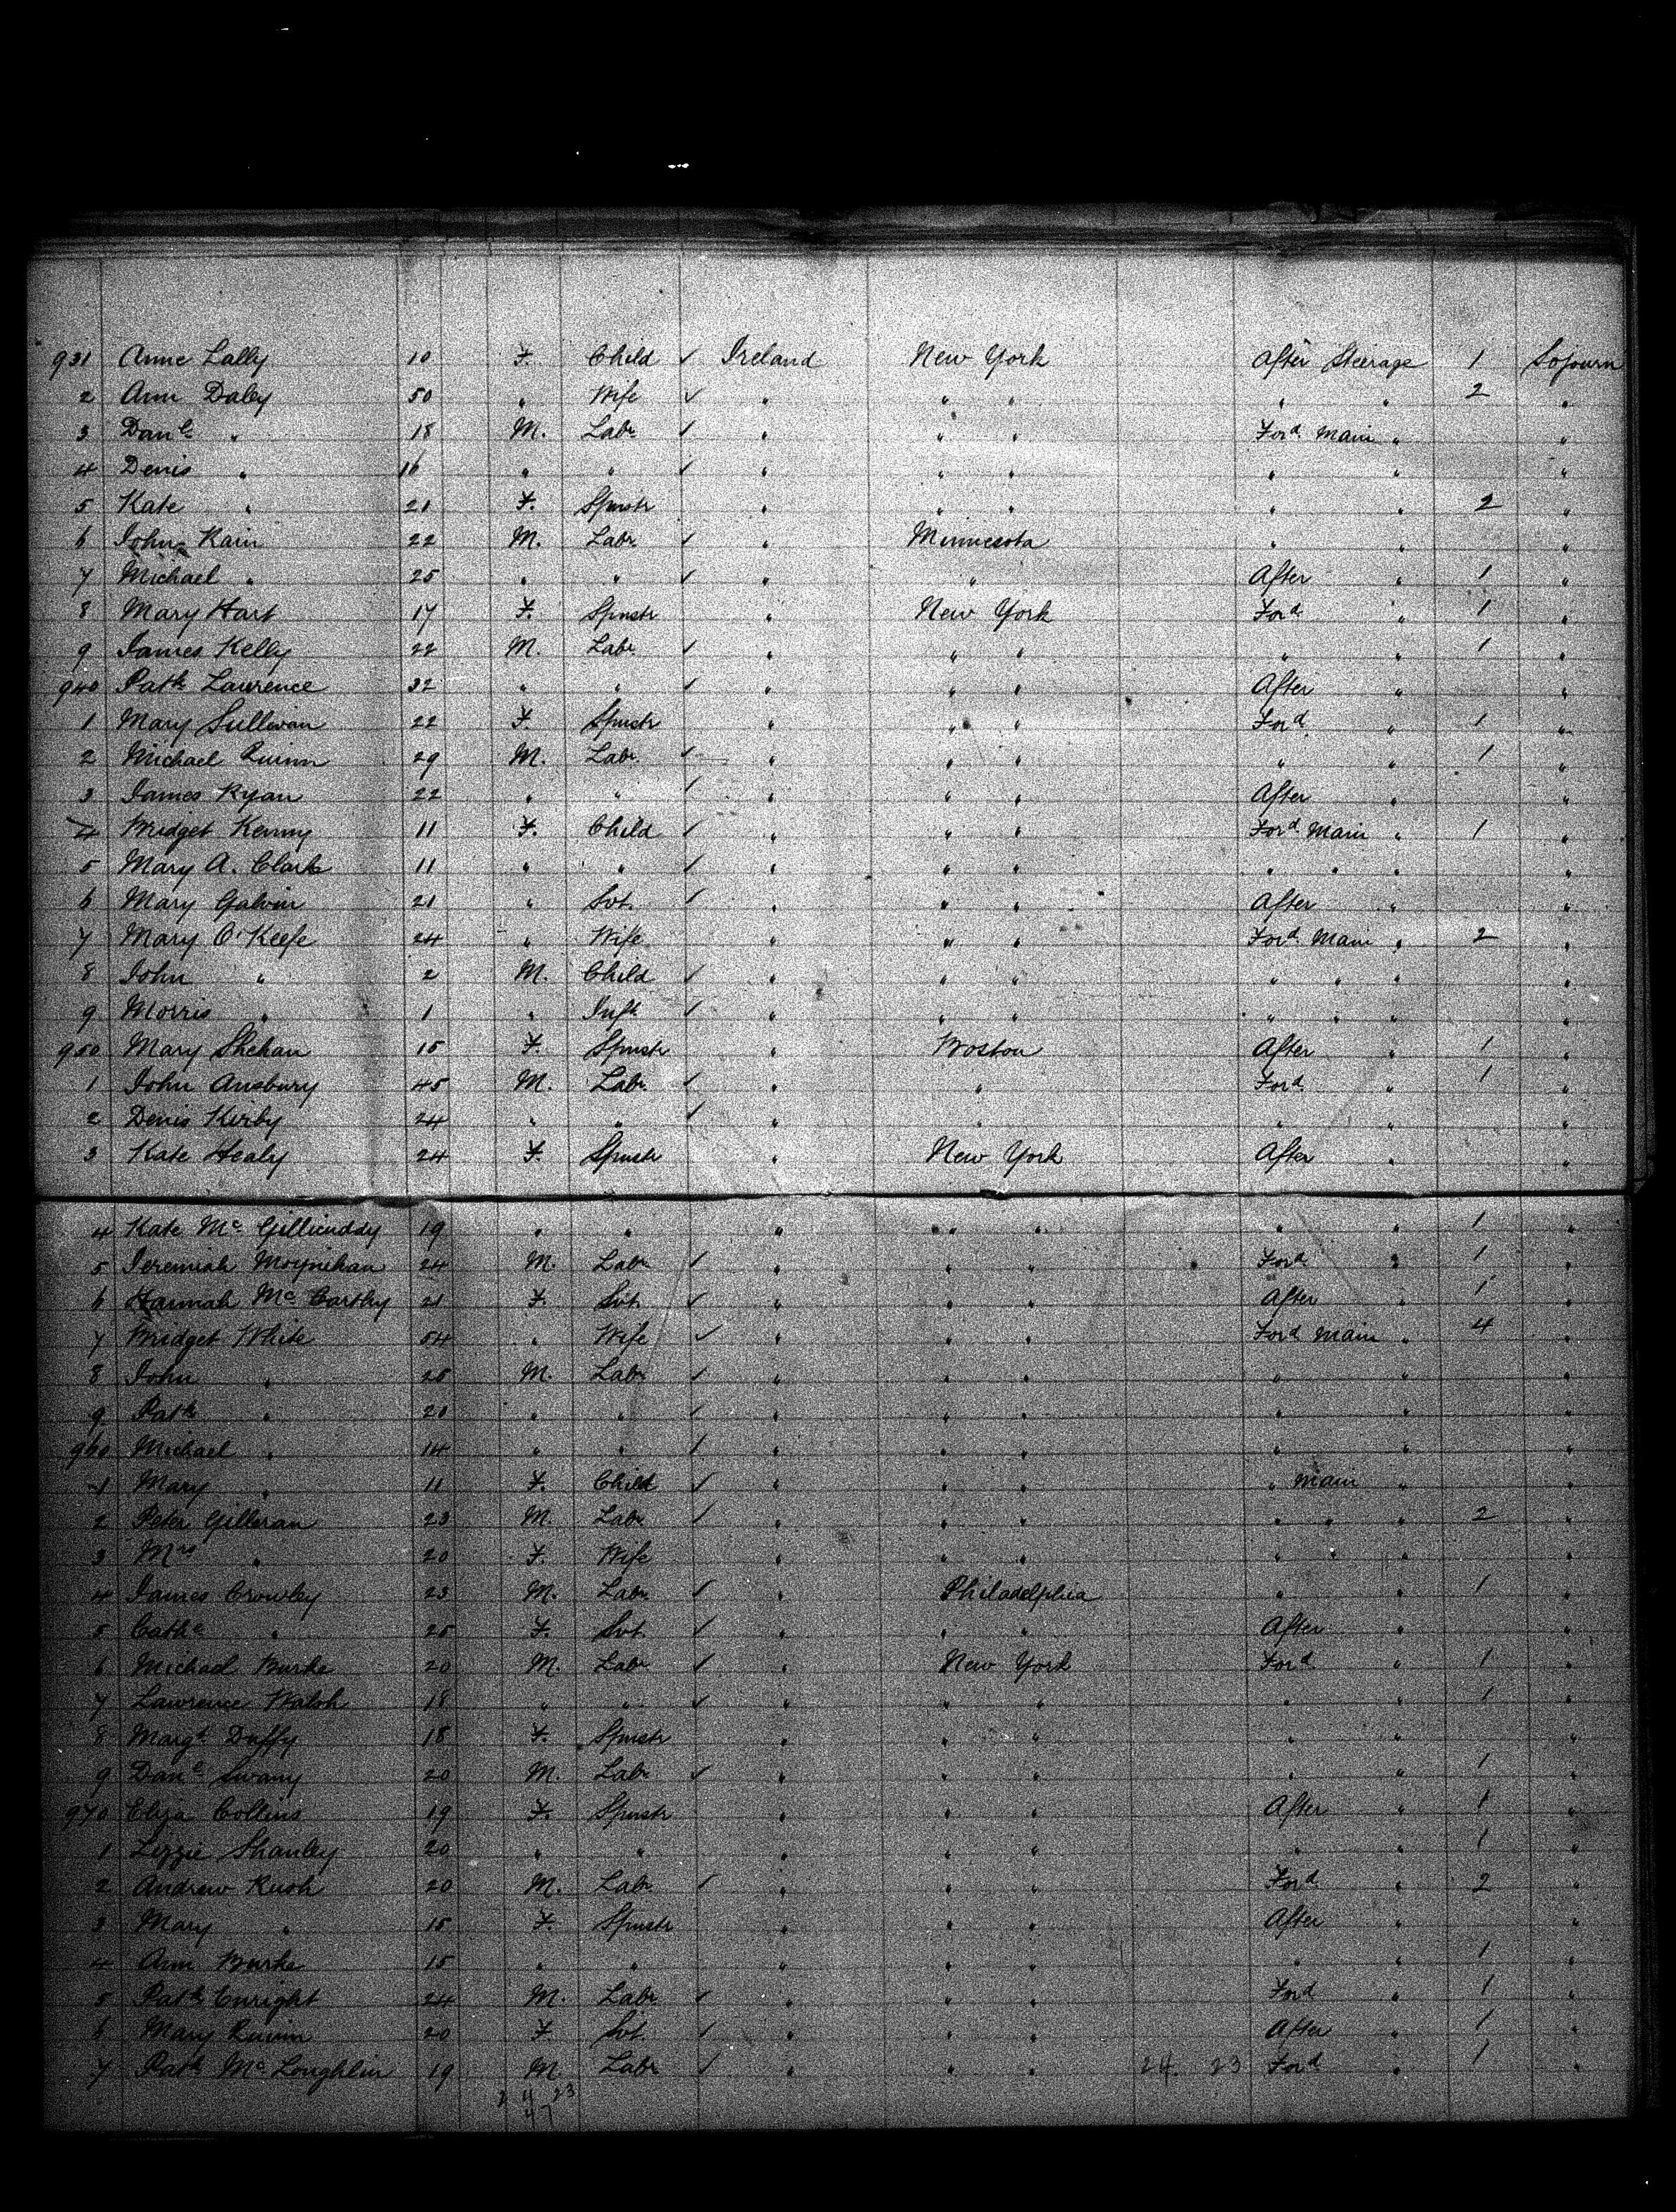 931 Anne Lally 10 F. Child ✓ Ireland New York After Steerage 1 Sojourn
2 Ann Daley 50 " Wife ✓ " " " " " 2 "
3 Danl " 18 M. Labr ✓ " " " Ford Main " "
4 Denis " 16 " " ✓ " " " " " "
5 Kate " 21 F. Spnstr " " " " " 2 "
6 John Kain 22 M. Labr ✓ " Minnesota " " "
7 Michael " 25 " " ✓ " " After " 1 "
8 Mary Hart 17 F. Spnstr " New York Ford " 1 "
9 James Kelly 22 M. Labr ✓ " " " " " 1 "
940 Patk Lawrence 32 " " ✓ " " " After " "
1 Mary Sullivan 22 F. Spnstr " " " Ford " 1 "
2 Michael Quinn 29 M. Labr ✓ " " " " " 1 "
3 James Ryan 22 " " ✓ " " " After " "
4 Bridget Kenny 11 F. Child ✓ " " " Ford Main " 1 "
5 Mary A. Clark 11 " " ✓ " " " " " " "
6 Mary Galvin 21 " Svt. ✓ " " " After " "
7 Mary O'Keefe 24 " Wife " " " Ford Main " 2 "
8 John " 2 M. Child ✓ " " " " " " "
9 Morris " 1 " Inft ✓ " " " " " " "
950 Mary Shehan 15 F. Spnstr " Boston After " 1 "
1 John Ansbury 45 M. Labr ✓ " " Ford " 1 "
2 Denis Kirby 24 " " ✓ " " " " "
3 Kate Healy 24 F. Spnstr " New York After " "
4 Kate Mc Gillicuddy 19 " " " " " " " 1 "
5 Jeremiah Moynihan 24 M. Labr ✓ " " " Ford " 1 "
6 Hannah Mc Carthy 21 F. Svt. ✓ " " " After " 1 "
7 Bridget White 54 " Wife ✓ " " " Ford Main " 4 "
8 John " 25 M. Labr ✓ " " " " " "
9 Patk " 21 " " ✓ " " " " " "
960 Michael " 14 " " ✓ " " " " " "
1 Mary " 11 F. Child ✓ " " " " Main " "
2 Peter Gilleran 23 M. Labr ✓ " " " " " " 2 "
3 Mrs " 20 F. Wife " " " " " " "
4 James Crowley 23 M. Labr ✓ " Philadelphia " " 1 "
5 Cathe " 25 F. Svt. ✓ " " " After " "
6 Michael Burke 20 M. Labr ✓ " New York Ford " 1 "
7 Lawrence Walsh 18 " " ✓ " " " " " 1 "
8 Margt Duffy 18 F. Spnstr " " " " " "
9 Danl Swany 20 M. Labr ✓ " " " " " 1 "
970 Eliza Collins 19 F. Spnstr " " " After " 1 "
1 Lizzie Shanley 20 " " " " " " " 1 "
2 Andrew Rush 20 M. Labr ✓ " " " Ford " 2 "
3 Mary " 15 F. Spnstr " " " After " "
4 Ann Burke 15 " " " " " " " 1 "
5 Patk Enright 24 M. Labr ✓ " " " Ford " 1 "
6 Mary Quinn 20 F. Svt. ✓ " " " After " 1 "
7 Patk Mc Loughlin 19 M. Labr ✓ " " " 24. 23 Ford " 1 "
24 23
47